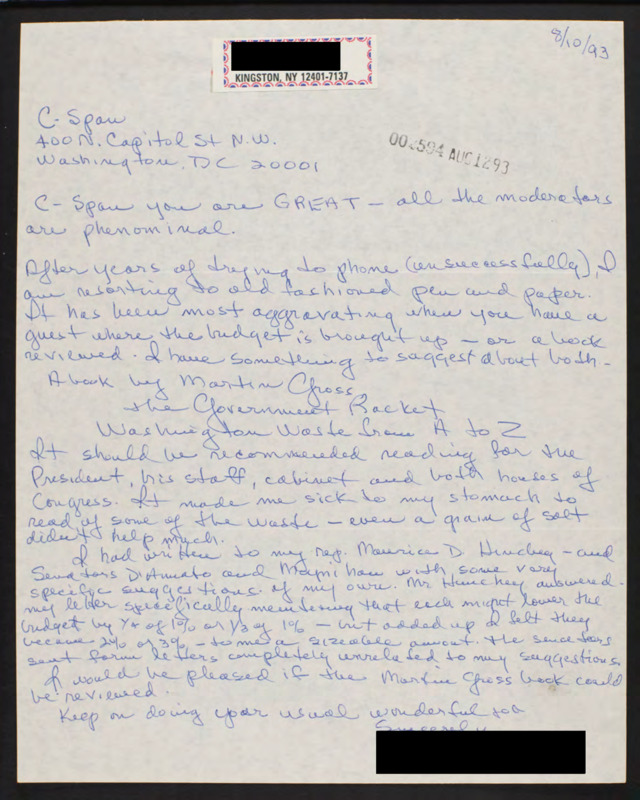 8/10/93
KINGSTON, NY 12401-7137
C-Span
400 N. Capitol St N.W.
Washington, DC 20001
AUG 12 93
C-Span you are GREAT - all the moderators
are phenominal.
After years of trying to phone (unsuccessfully), I
am resorting to old fashioned pen and paper.
It has been most aggravating when you have a
guest where the budget is brought up - or a book
reviewed. I have something to suggest about both -
A book by Martin Gross
The Government Racket
Washington Waste from A to Z
It should be recommended reading for the
President, his staff, cabinet and both houses of
Congress. It made me sick to my stomach to
read of some of the waste - even a grain of salt
didn't help much.
I had written to my rep. Maurice D Hinchey - and
Senators D'Amato and Moynihan with some very
specific suggestions of my own. Mr Hinchey answered
my letter specifically mentioning that each might lower the
budget by 1/4 of 1% or 1/3 of 1% - but added up I felt they
became 2% or 3% - to me a sizeable amount. The senators
sent form letters completely unrelated to my suggestions
I would be pleased if the Martin Gross book could
be reviewed.
Keep on doing your usual wonderful job
Sincerely